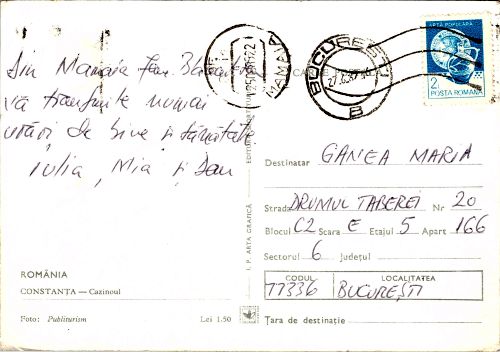 Din Mamaia
vă transmite numai
urări de bine și sănătate
Iulia, Mia și Dan
ROMÂNIA
CONSTANȚA — Cazinoul
Foto: Publiturism Lei 1.50
I. P. ARTA GRAFICĂ
MAMAIA
BUCUREȘTI
B
ARTA POPULARA
2L
POSTA ROMANA
Destinatar GANEA MARIA
Strada DRUMUL TABEREI Nr 20
Blocul C2 Scara E Etajul 5 Apart 166
Sectorul 6 Județul
CODUL LOCALITATEA
77336 BUCUREȘTI
Țara de destinație